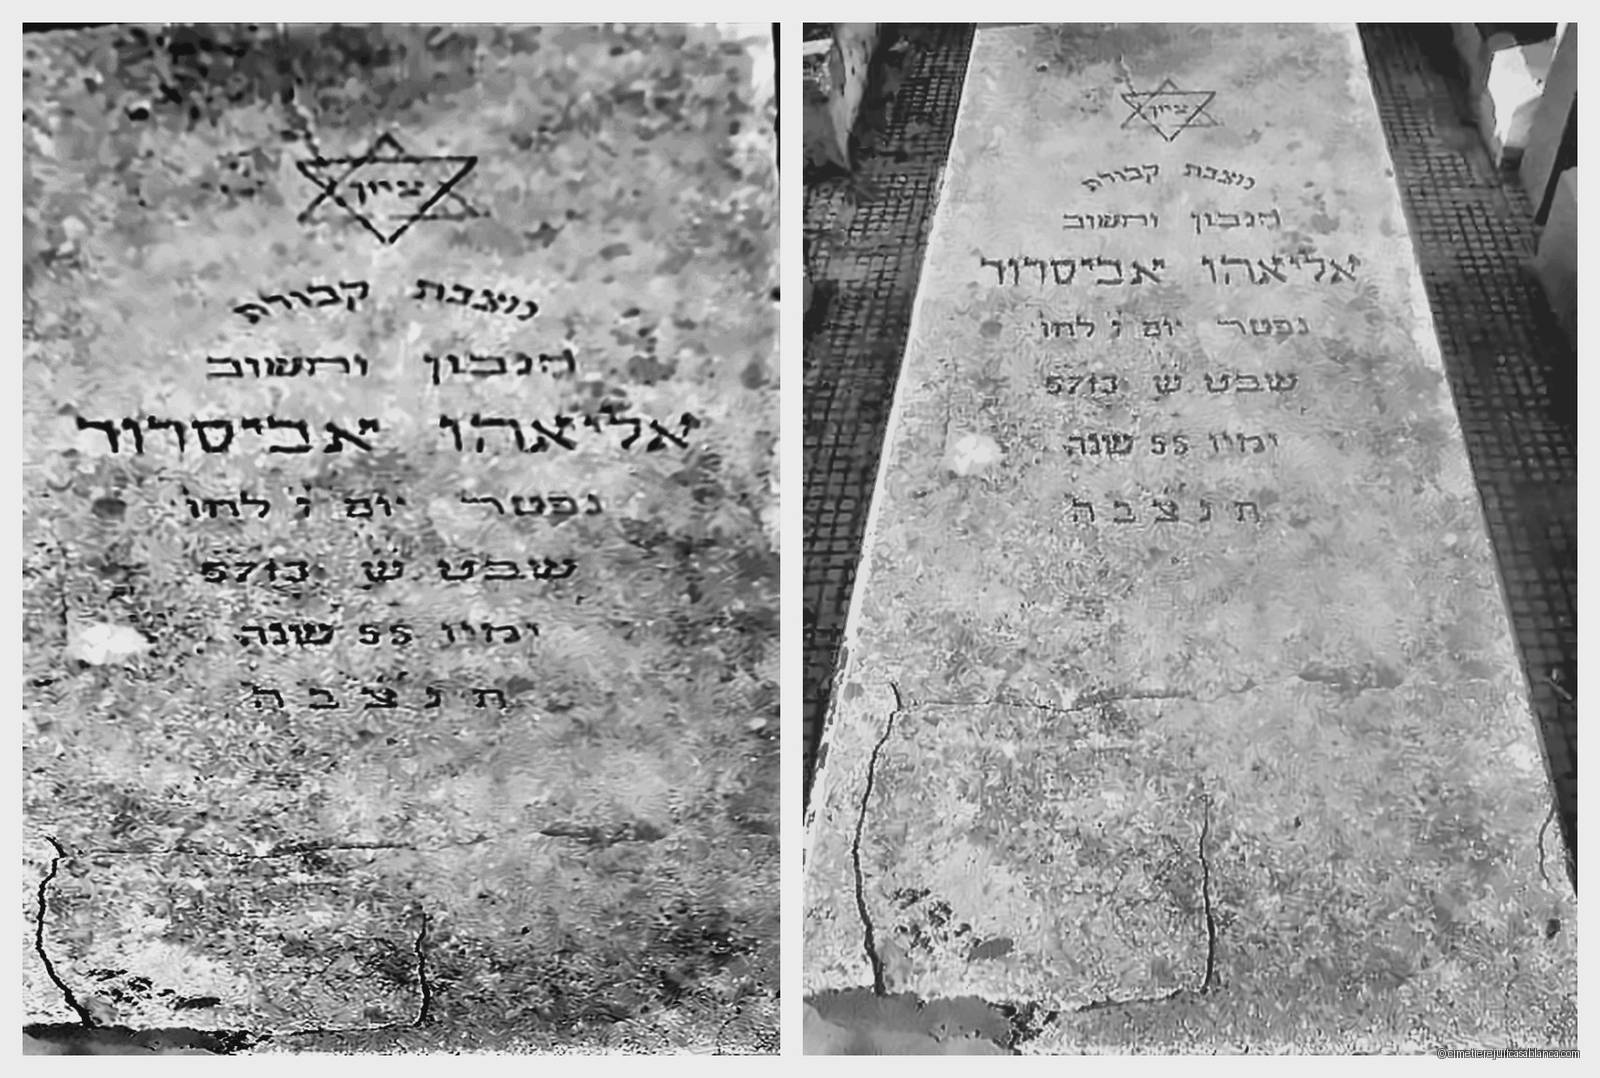 ציון
מצבת קבורת
הנבון וחשוב
אליאהו אביסרור
נפטר יום ו לחו'
שבט ש 5713
ימיו 55 שנה
ת נ צ ב ה
ציון
מצבת קבורת
הנבון וחשוב
אליאהו אביסרור
נפטר יום ו לחו'
שבט ש 5713
ימיו 55 שנה
ת נ צ ב ה
©cimetierejuifcasablanca.com